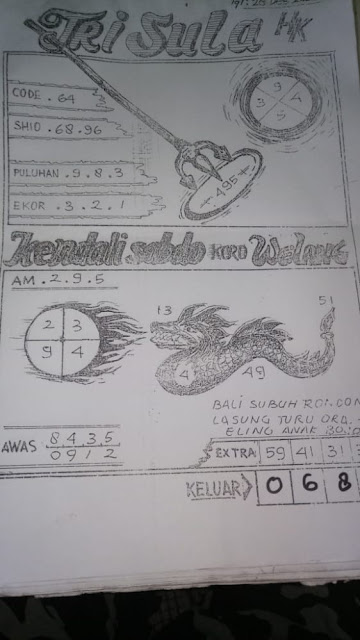 Tri Sula HK
CODE . 64
SHIO . 68.96
PULUHAN . 9 . 8 . 3
EKOR . 3 . 2 . 1
3 9 4 5
495
sabdo KORO Welang
AM . 2 . 9 . 5
2 3
9 4
13
51
4
49
BALI SUBUH
LASUNG TURU ORA
ELING ANAK
AWAS 8 4 3 5
0 9 1 2
EXTRA 59 41 31
KELUAR 0 6 8